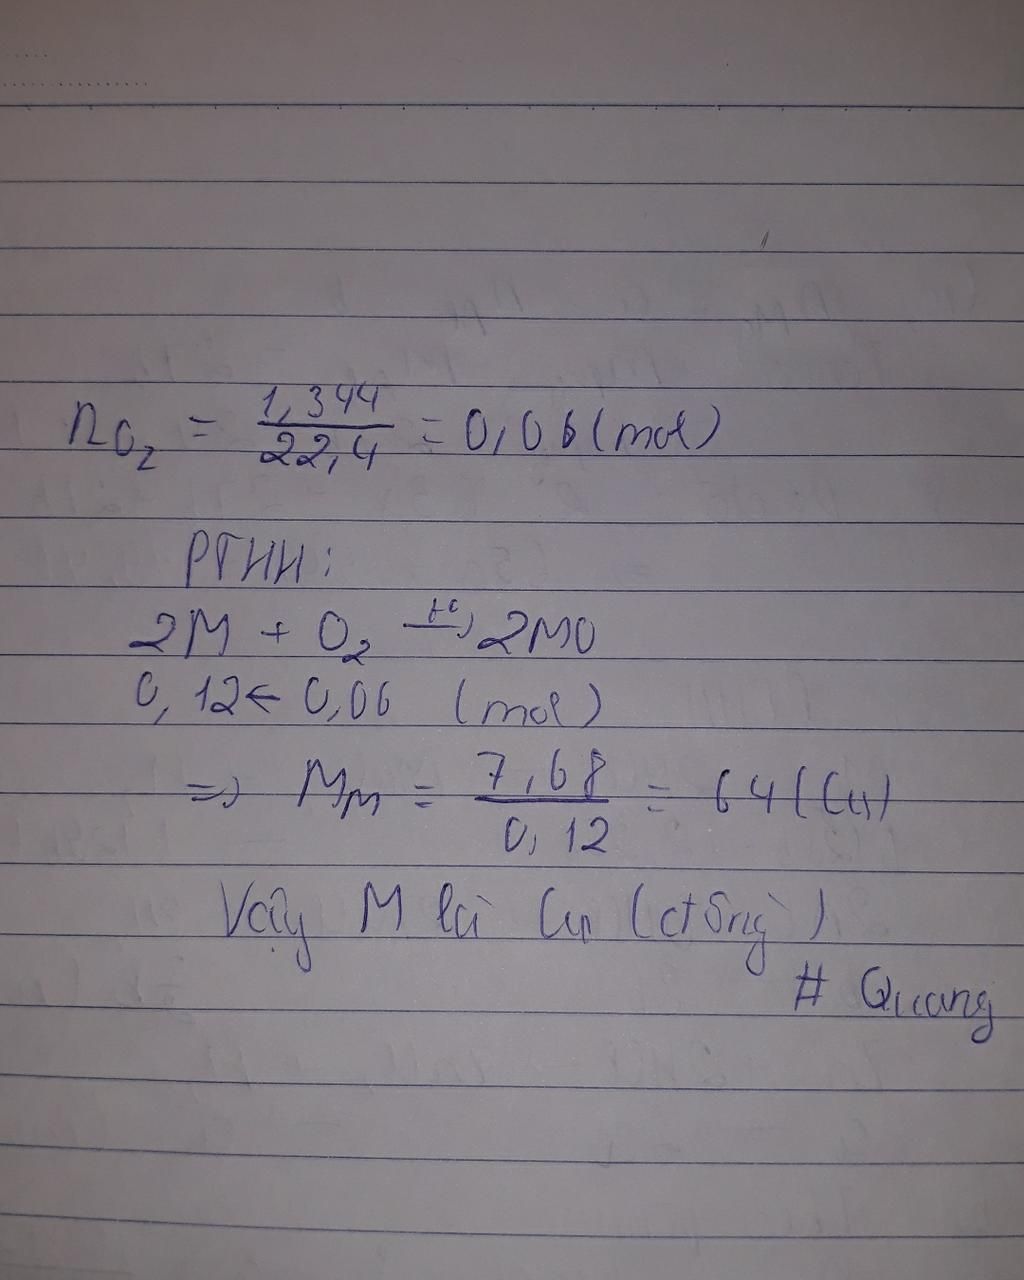 nO₂ = 1,344/22,4 = 0,06 (mol)
PTHH:
2M + O₂ t°→ 2MO
0,12 ← 0,06 (mol)
=> Mₘ = 7,68/0,12 = 64 (Cu)
Vậy M là Cu (đồng)
# Quang